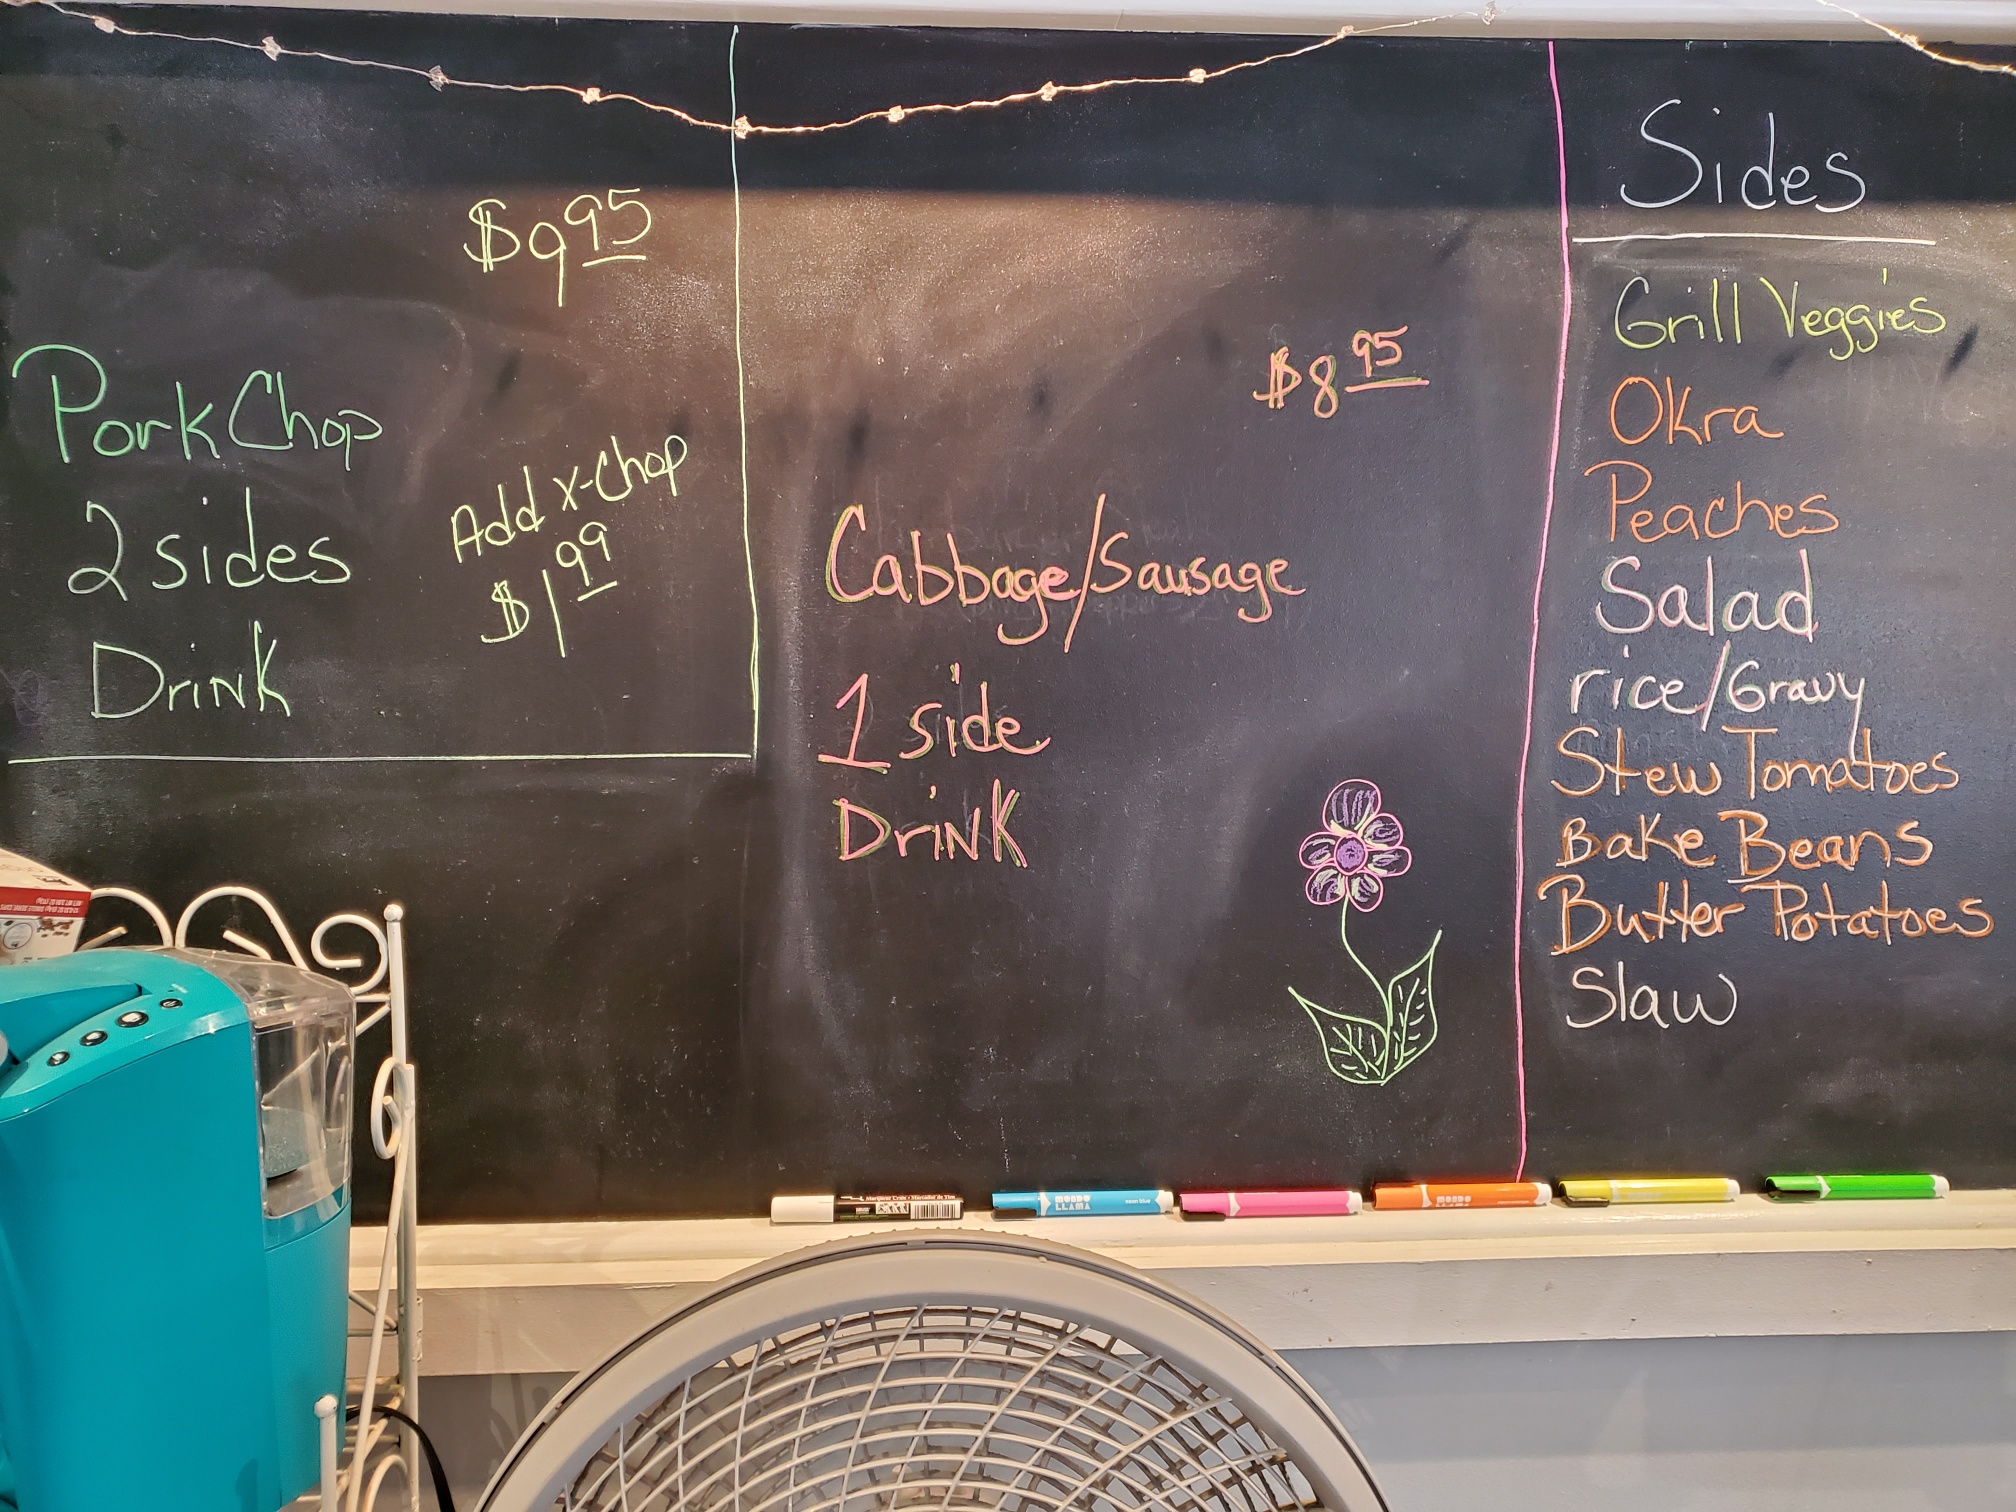 $9.95
Pork Chop
2 sides
Drink
Add x-Chop
$1.99
$8.95
Cabbage/Sausage
1 side
Drink
Sides
Grill Veggies
Okra
Peaches
Salad
rice/Gravy
Stew Tomatoes
Bake Beans
Butter Potatoes
Slaw
MONDO
LLAMA
neon blue
MONDO
LLAMA